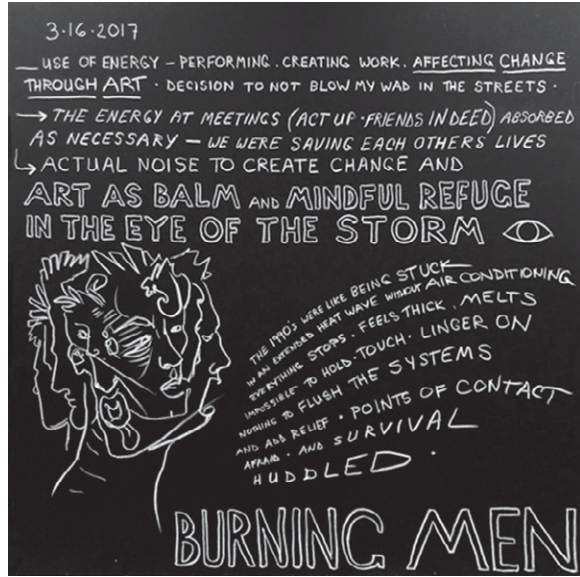 3·16·2017
— USE OF ENERGY — PERFORMING. CREATING WORK. AFFECTING CHANGE
THROUGH ART · DECISION TO NOT BLOW MY WAD IN THE STREETS ·
→ THE ENERGY AT MEETINGS (ACT UP · FRIENDS INDEED) ABSORBED
AS NECESSARY — WE WERE SAVING EACH OTHERS LIVES
↳ ACTUAL NOISE TO CREATE CHANGE AND
ART AS BALM AND MINDFUL REFUGE
IN THE EYE OF THE STORM
THE 1990'S WERE LIKE BEING STUCK
IN AN EXTENDED HEAT WAVE WITHOUT AIR CONDITIONING
EVERYTHING STOPS. FEELS THICK. MELTS
IMPOSSIBLE TO HOLD. TOUCH. LINGER ON
NOTHING TO FLUSH THE SYSTEMS
AND ADD RELIEF · POINTS OF CONTACT
AFRAID · AND SURVIVAL
HUDDLED ·
BURNING MEN